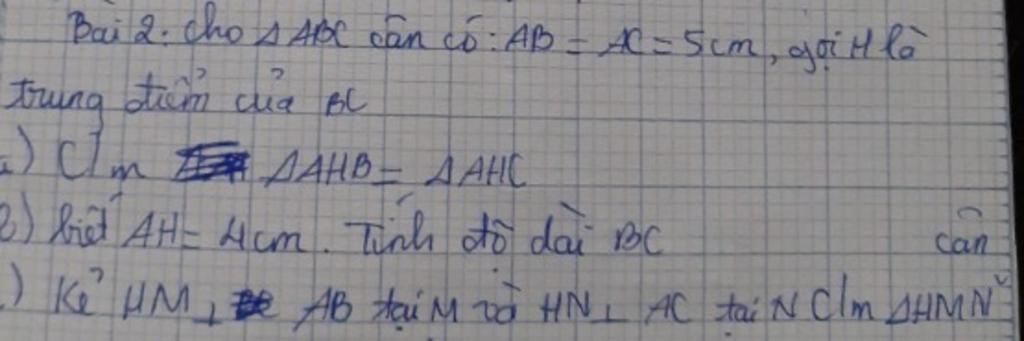 Bài 2. Cho Δ ABC cân có: AB = AC = 5cm, gọi H là
trung điểm của BC
) C/m ΔAHB = ΔAHC
) biết AH = 4cm. Tính độ dài BC
cân
) Kẻ HM ⊥ AB tại M và HN ⊥ AC tại N C/m ΔHMN